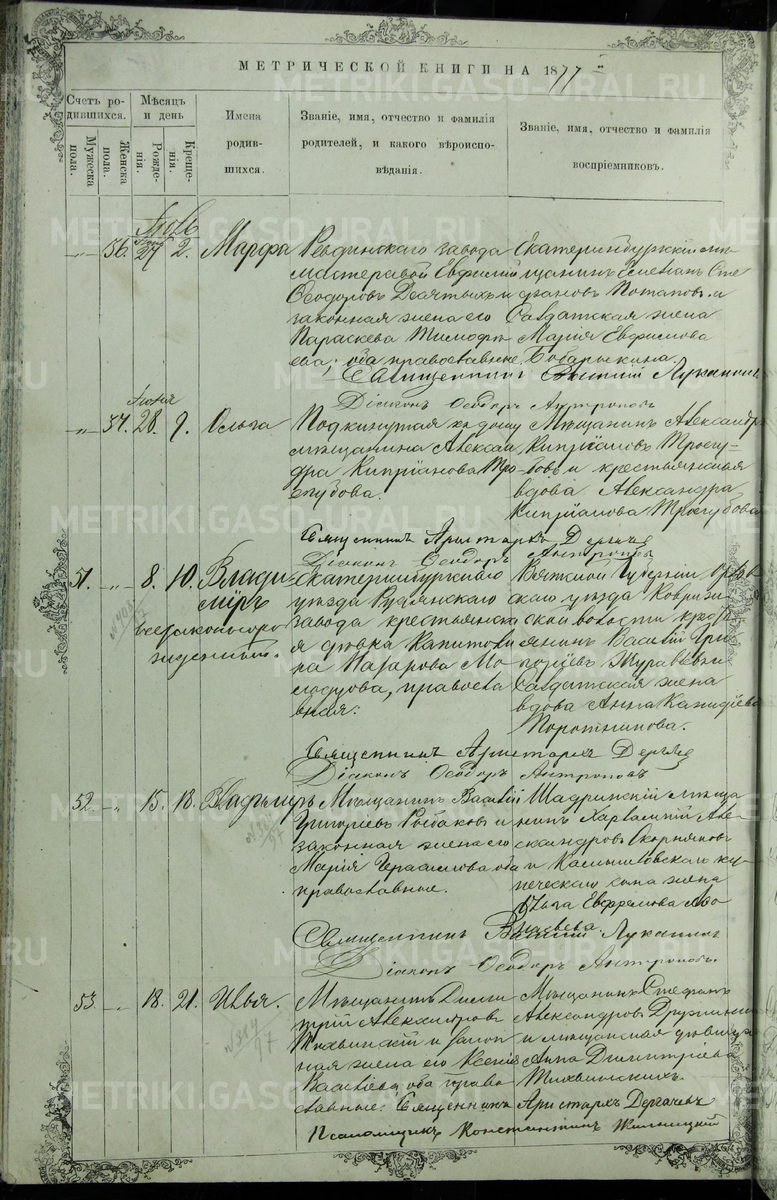 МЕТРИЧЕСКОЙ КНИГИ НА 1877
Счетъ ро-
дившихся.
Мужеска
пола.
Женска
пола.
Мѣсяцъ
и день
Рожде-
нія.
Креще-
нія.
Имена
родив-
шихся.
Званіе, имя, отчество и фамилія
родителей, и какого вѣроиспо-
вѣданія.
Званіе, имя, отчество и фамилія
воспріемниковъ.
Іюль
56. 27 2. Марфа
Ревдинскаго завода
мастеровой Евфимій
Ѳеодоровъ Десятыхъ и
законная жена его
Параскева Тимофѣ
ева, оба православные.
Екатеринбургскій мѣ
щанинъ
Потаповъ и
Солдатская жена
Марія Евфимова
Священникъ Василій Луканинъ
Діаконъ Ѳеодоръ Антроповъ
Іюня
57. 28. 9. Ольга
Подкинутая къ дому
мѣщанина Алексан
дра Кипріанова Тро-
егубова.
Мѣщанинъ Александръ
Кипріановъ Троегу-
бовъ и крестьянская
вдова Александра
Кипріанова Троегубова
Священникъ Аристархъ Дергачевъ
Діаконъ Ѳеодоръ Антроповъ
51. 8. 10. Влади-
міръ
незаконноро
жденный.
Екатеринбургскаго
уѣзда Рудянскаго
завода крестьянска
я дѣвка Капитоли
на Назарова Мо
лодцова, правосла
вная.
Вятской Губерніи Орлов
скаго уѣзда
ской волости кресть
янинъ Василій Гри
горьевъ Журавлевъ и
Солдатская жена
вдова Анна
Поротникова.
Священникъ Аристархъ Дергачевъ
Діаконъ Ѳеодоръ Антроповъ
52. 15. 18. Владиміръ
Мѣщанинъ Василій
Григорьевъ Рыбаковъ и
законная жена его
Марія Герасимова оба
православные.
Шадринскій мѣща
нинъ Харлампій Але
ксандровъ Скорняковъ
и Камышловскаго ку
печескаго сына жена
Ольга Евфремова
Священникъ Василій Луканинъ
Діаконъ Ѳеодоръ Антроповъ.
53. 18. 21. Илья.
Мѣщанинъ Дими
трій Александровъ
Тихвинскій и закон
ная жена его Ксенія
Васильева, оба право
славные.
Мѣщанинъ Стефанъ
Александровъ Дружининъ
и мѣщанская дѣвица
Анна Димитріева
Тихвинскихъ.
Священникъ Аристархъ Дергачевъ
Псаломщикъ Константинъ
METRIKI.GASO-URAL.RU
METRIKI.GASO-URAL.RU
METRIKI.GASO-URAL.RU
METRIKI.GASO-URAL.RU
METRIKI.GASO-URAL.RU
METRIKI.GASO-URAL.RU
METRIKI.GASO-URAL.RU
METRIKI.GASO-URAL.RU